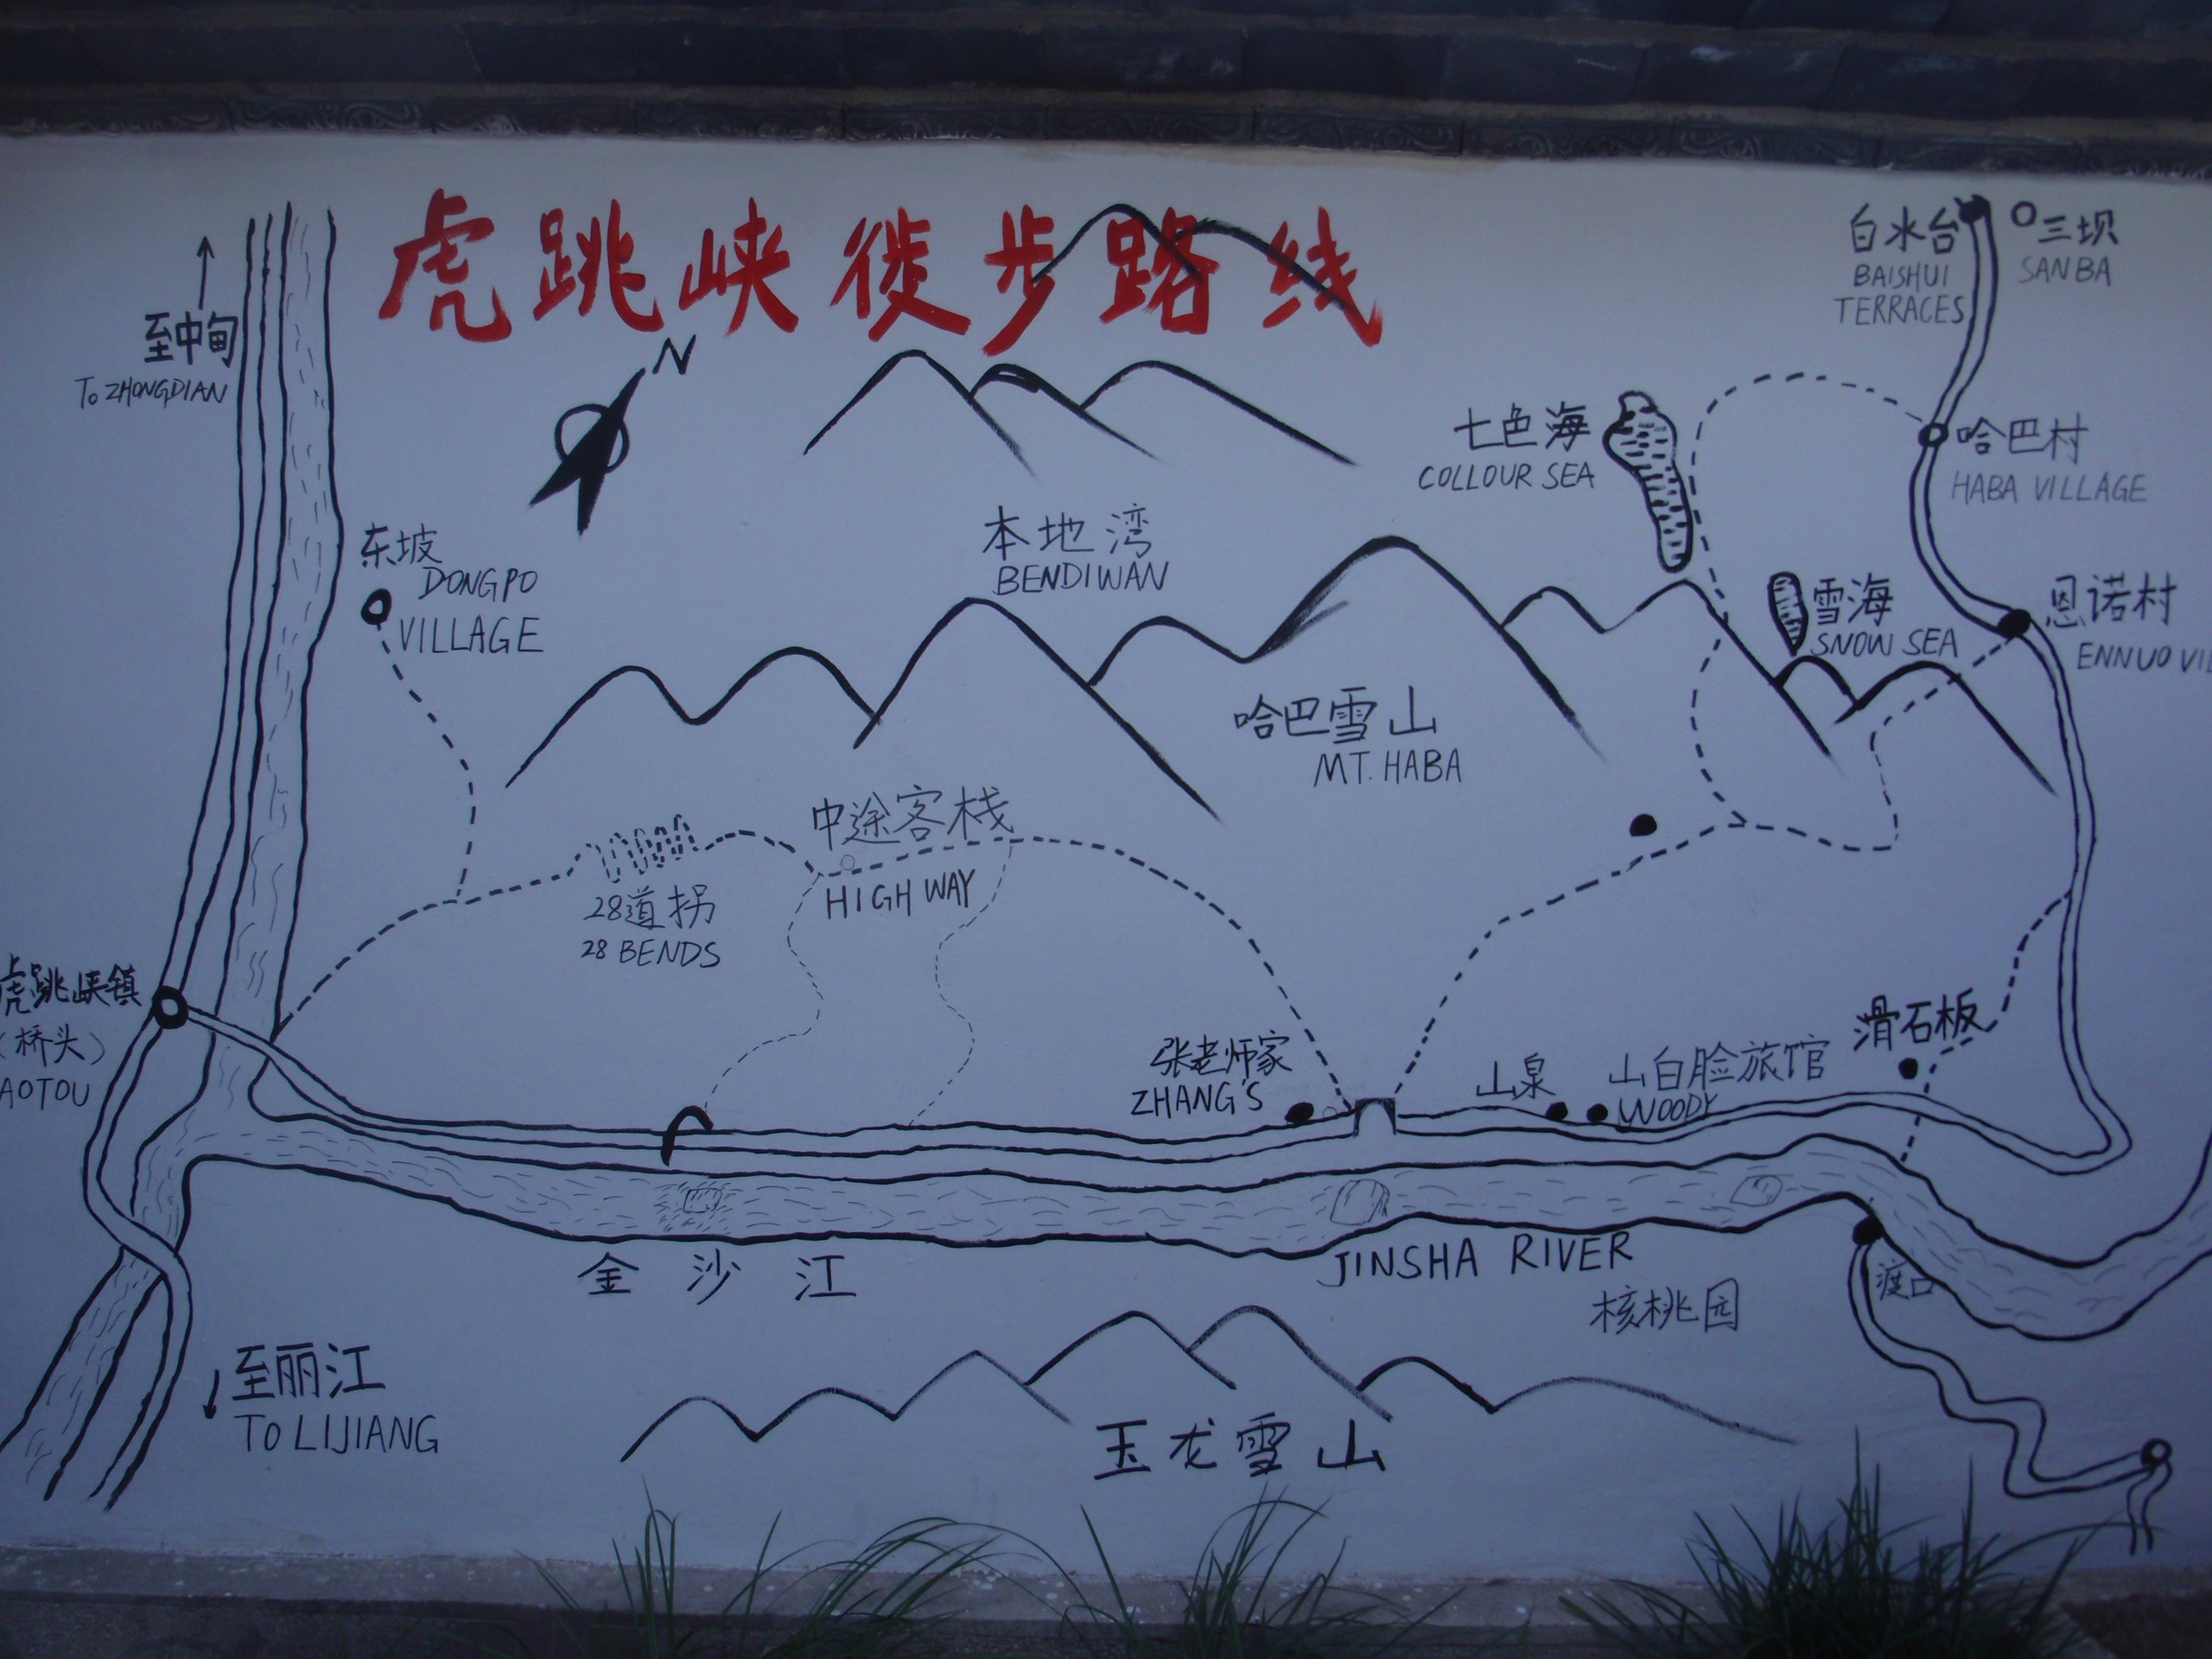 虎跳峡徙步路线
N
至中甸
To ZHONGDIAN
白水台
BAISHUI
TERRACES
三坝
SANBA
七色海
COLLOUR SEA
哈巴村
HABA VILLAGE
东坡
DONGPO
VILLAGE
本地湾
BENDIWAN
雪海
SNOW SEA
恩诺村
ENNUO VIL
哈巴雪山
MT. HABA
中途客栈
HIGH WAY
28道拐
28 BENDS
虎跳峡镇
(桥头)
AOTOU
张老师家
ZHANG'S
山泉
山白脸旅馆
WOODY
滑石板
金沙江
JINSHA RIVER
核桃园
渡口
至丽江
To LIJIANG
玉龙雪山